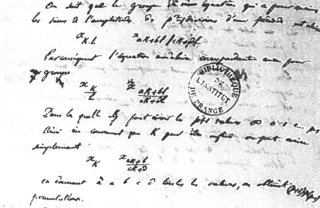 On sait que le groupe de une équation qui a pour racines
les sinus de l'amplitude des p divisions d'un
x k.l x ak+bl, ck+dl
Par conséquent l'équation modulaire correspondante aura pour
groupe
x k/l x ak+bl/ck+dl
Dans laquelle k/l peut avoir les p+1 valeurs ∞ 0 1 ... p-1
Ainsi en convenant que K peut être infini on peut écrire
simplement
x k x ak+b/ck+d
en donnant à a b c d toutes les valeurs, on obtient (p+1)p(p-1)
permutations.
BIBLIOTHEQUE
DE
L'INSTITUT
DE FRANCE